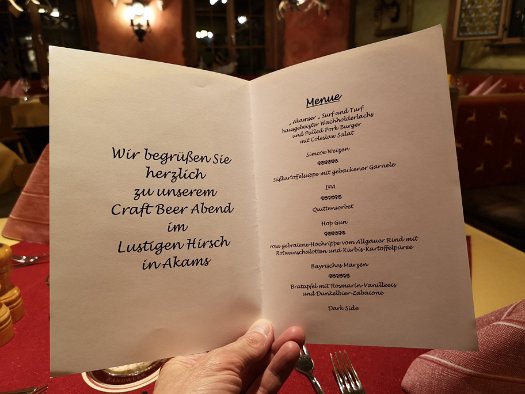 Wir begrüßen Sie
herzlich
zu unserem
Craft Beer Abend
im
Lustigen Hirsch
in Akams
Menue
„Akamser" Surf and Turf
hausgebeizter Wachholderlachs
und Pulled Pork Burger
mit Coleslaw Salat
Simcoe Weizen
Süßkartoffelsuppe mit gebackener Garnele
Ipa
Quittensorbet
Hop Gun
rosa gebratene Hochrippe vom Allgäuer Rind mit
Rotweinschalotten und Kürbis-Kartoffelpüree
Bayrisches Märzen
Bratapfel mit Rosmarin-Vanilleeis
und Dunkelbier-Zabaione
Dark Side